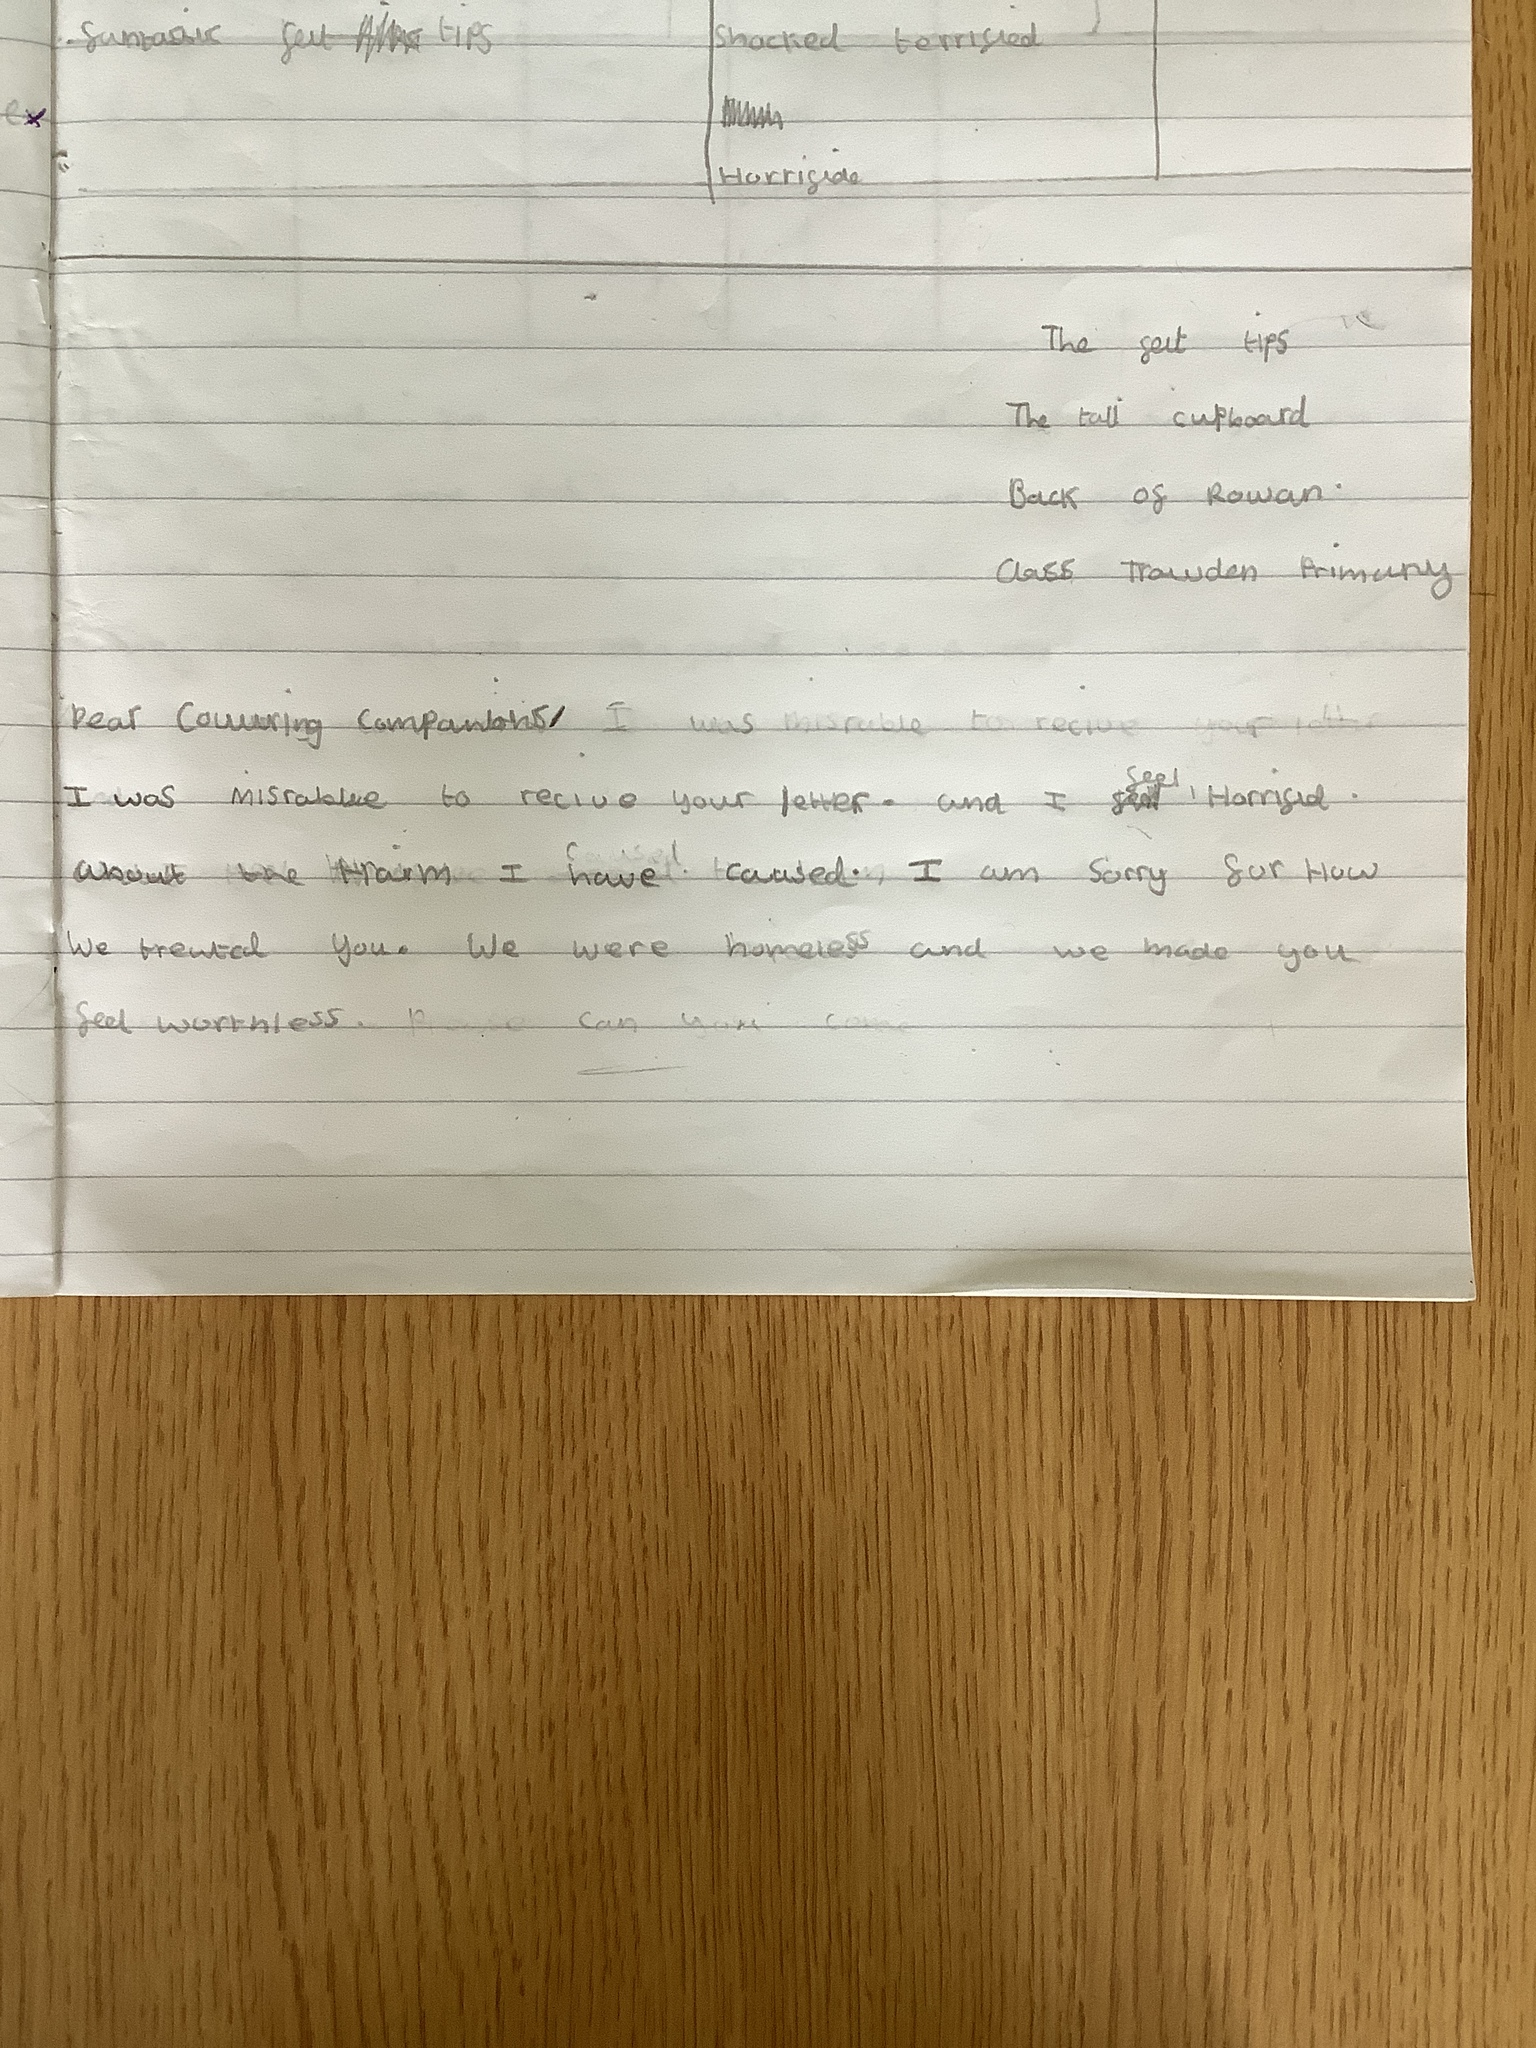 fantasic felt tips
shocked terrified
ex
Horrifide
The felt tips
The tall cupboard
Back of Rowan.
Class Trawden Primary
Dear Colluring Companions, I was misrable to recive your letter
I was misrable to recive your letter. and I feel Horrifid.
about the Harm I have caused. I am Sorry for How
We treated you. We were homeless and we made you
feel worthless. Please can you come